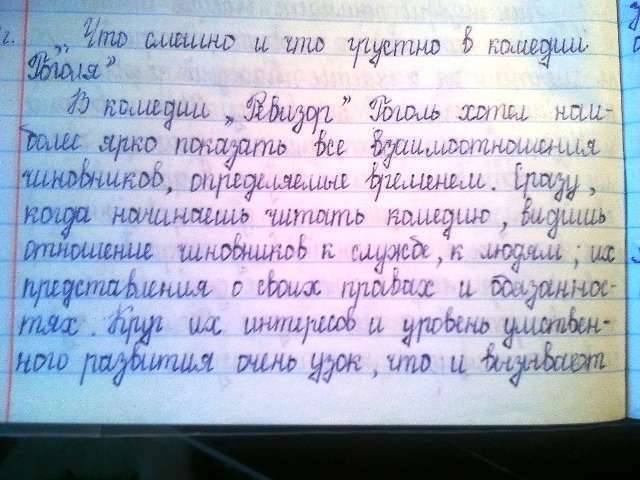 г. „Что смешно и что грустно в комедии
Гоголя”
В комедии „Ревизор” Гоголь хотел наи-
более ярко показать все взаимоотношения
чиновников, определяемые временем. Сразу,
когда начинаешь читать комедию, видишь
отношение чиновников к службе, к людям; их
представления о своих правах и обязаннос-
тях. Круг их интересов и уровень умствен-
ного развития очень узок, что и вызывает